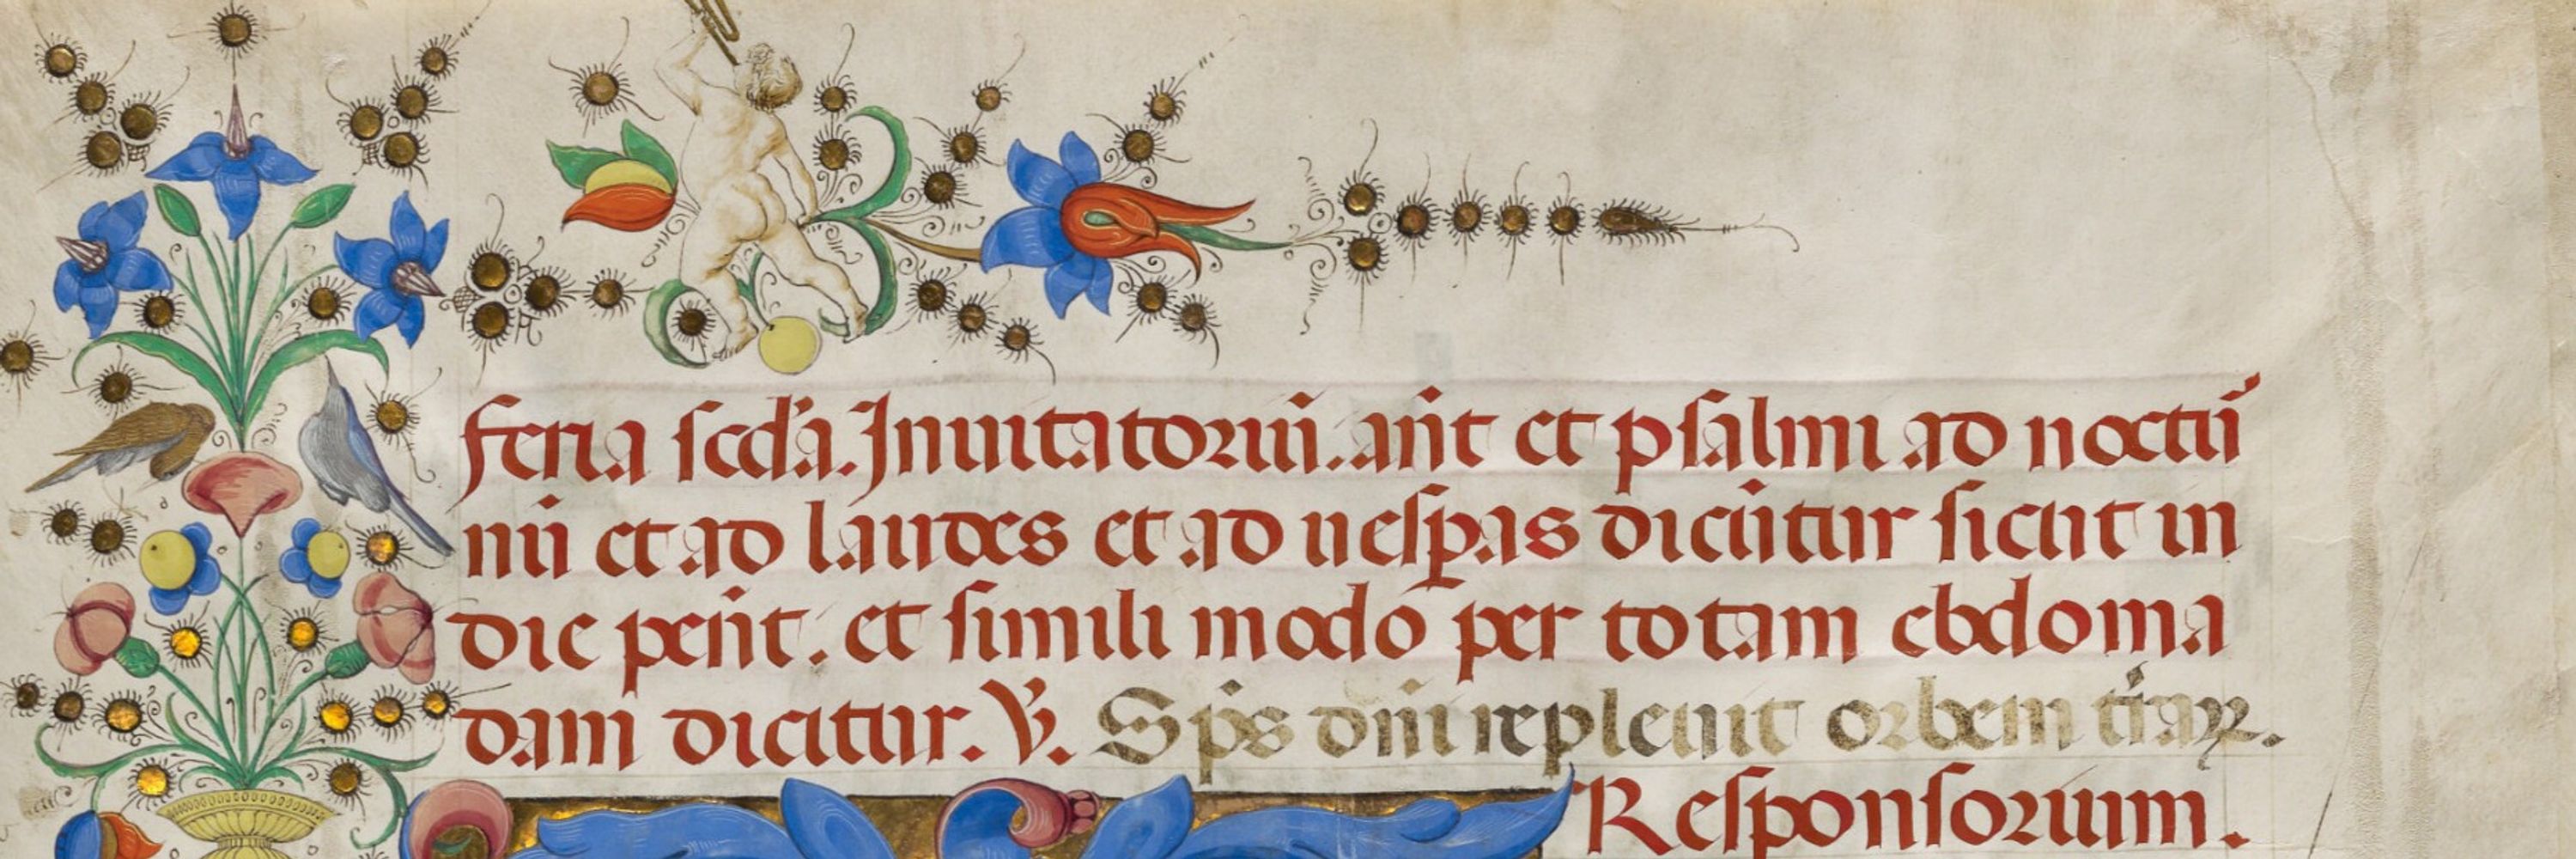 feria scd'a. Inuitatoriū. añt et psalmi ad noctū
nū et ad laudes et ad uesꝑas dicūtur sicut in
die peñt. et simili modo per totam ebdoma
dam dicitur. V̓. Sp̄s dñi repleuit orbem t̓raꝝ.
Responsorium.